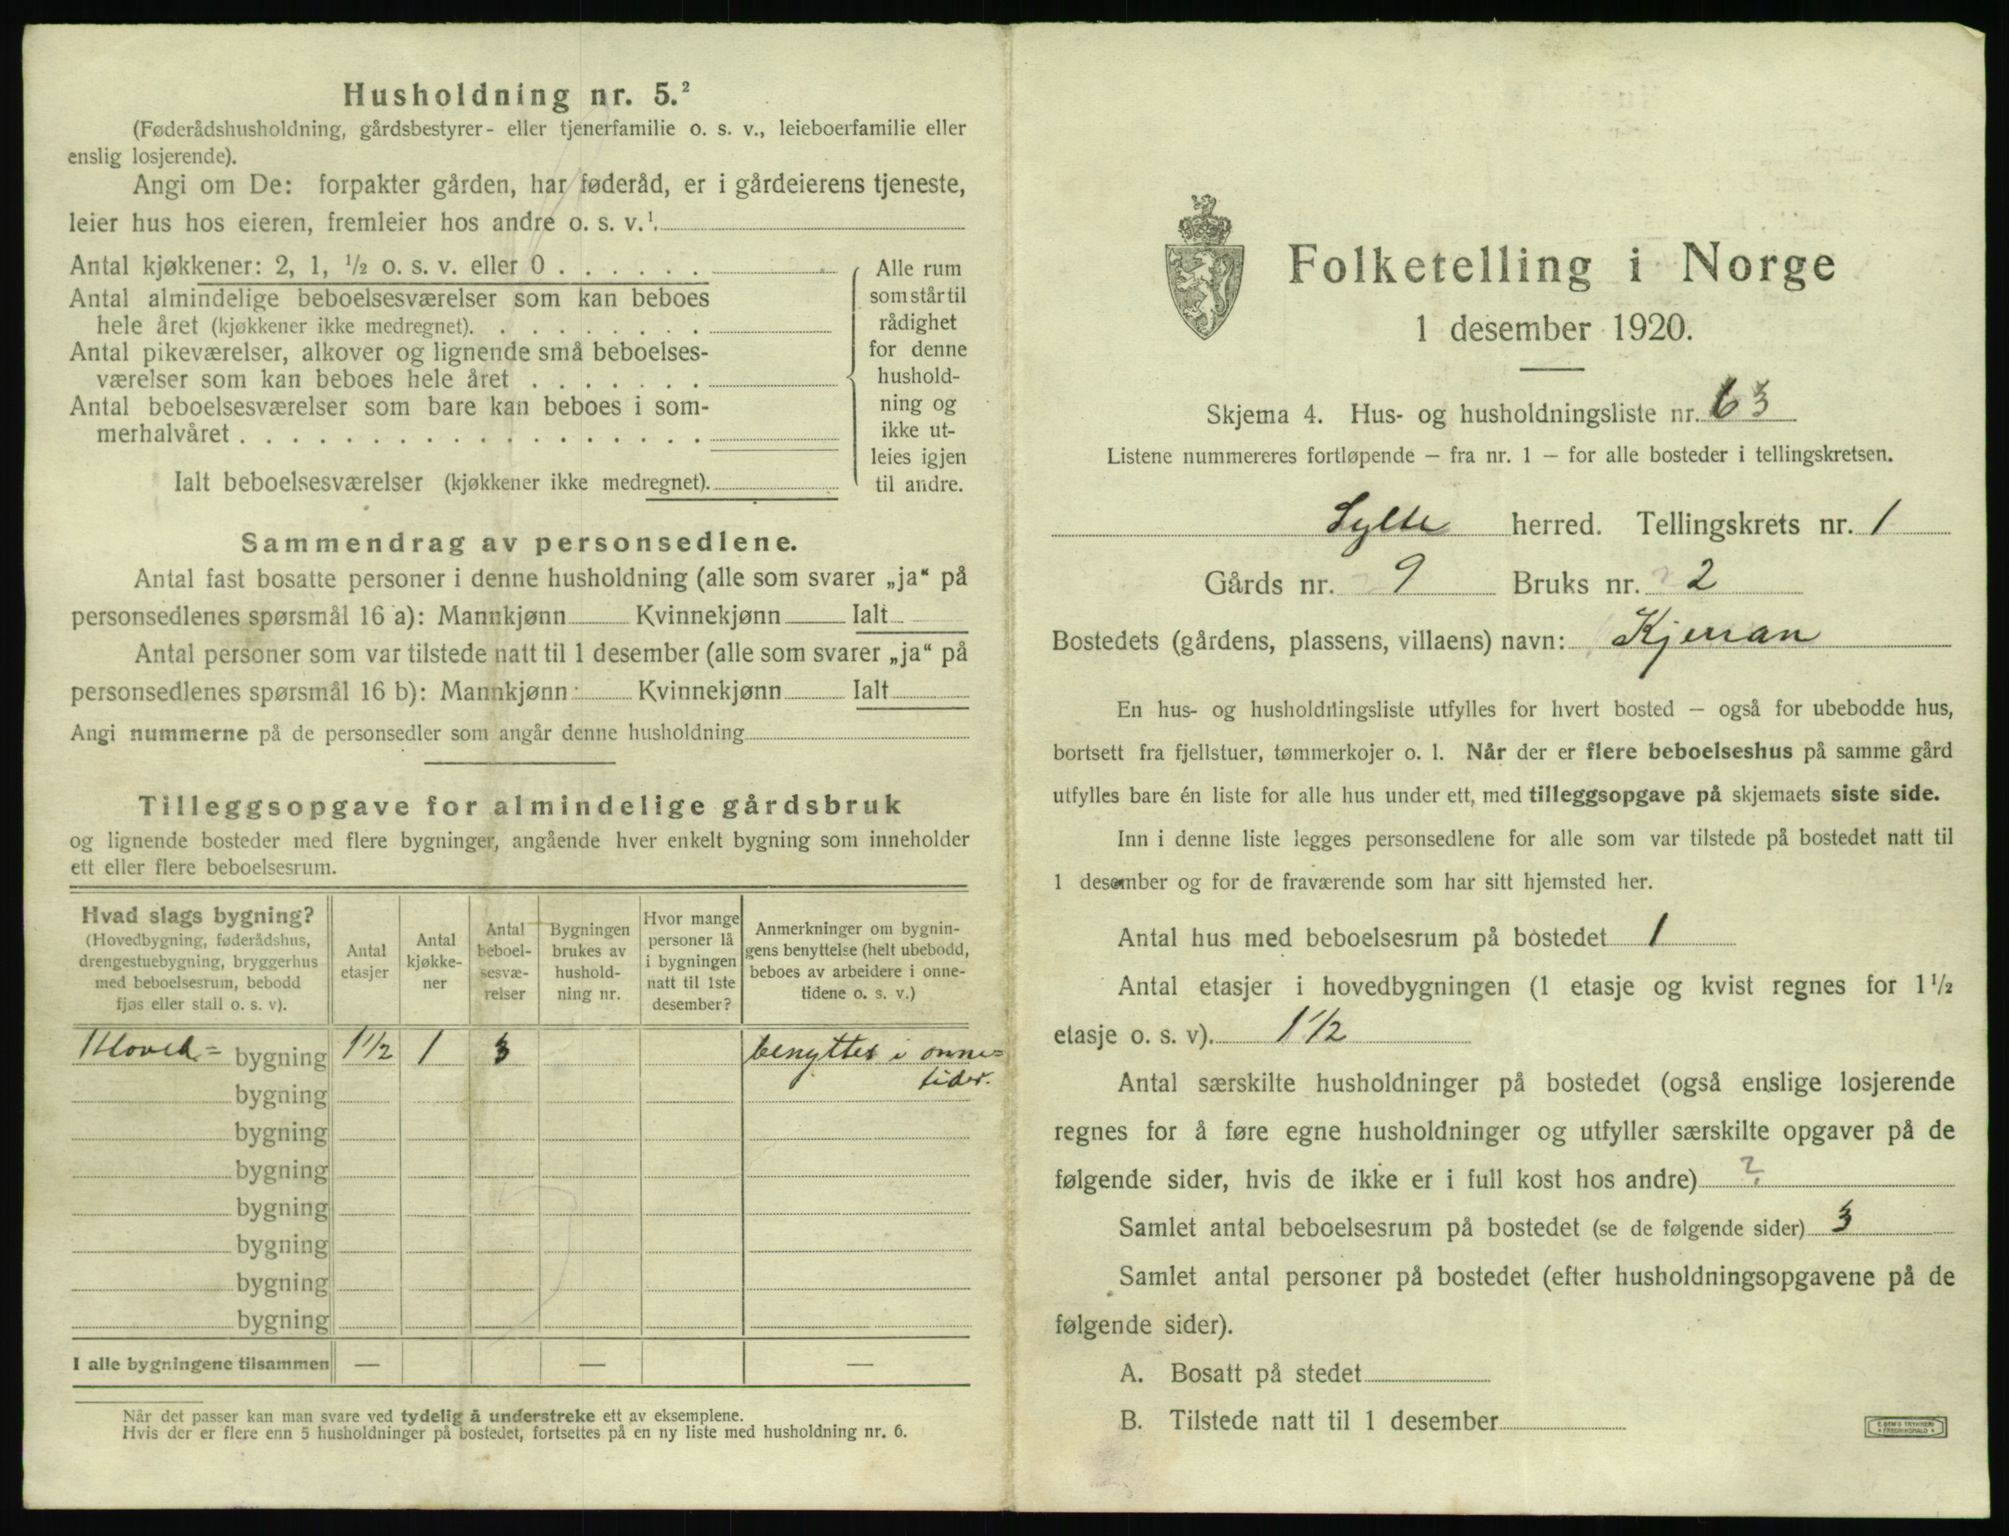 Husholdning nr. 5.²
(Føderådshusholdning, gårdsbestyrer- eller tjenerfamilie o. s. v., leieboerfamilie eller
enslig losjerende).
Angi om De: forpakter gården, har føderåd, er i gårdeierens tjeneste,
leier hus hos eieren, fremleier hos andre o. s. v.¹
Antal kjøkkener: 2, 1, ½ o. s. v. eller 0 . . . . . .
Antal almindelige beboelsesværelser som kan beboes
hele året (kjøkkener ikke medregnet). . . . . . . . .
Antal pikeværelser, alkover og lignende små beboelses-
værelser som kan beboes hele året . . . . . . .
Antal beboelsesværelser som bare kan beboes i som-
merhalvåret . . . . . . . . . . . . . . . . . .
Ialt beboelsesværelser (kjøkkener ikke medregnet).
Alle rum
som står til
rådighet
for denne
hushold-
ning og
ikke ut-
leies igjen
til andre.
Sammendrag av personsedlene.
Antal fast bosatte personer i denne husholdning (alle som svarer „ja“ på
personsedlenes spørsmål 16 a): Mannkjønn Kvinnekjønn Ialt
Antal personer som var tilstede natt til 1 desember (alle som svarer „ja“ på
personsedlenes spørsmål 16 b): Mannkjønn Kvinnekjønn Ialt
Angi nummerne på de personsedler som angår denne husholdning
Tilleggsopgave for almindelige gårdsbruk
og lignende bosteder med flere bygninger, angående hver enkelt bygning som inneholder
ett eller flere beboelsesrum.
Hvad slags bygning?
(Hovedbygning, føderådshus,
drengestuebygning, bryggerhus
med beboelsesrum, bebodd
fjøs eller stall o. s. v).
Antal
etasjer
Antal
kjøkke-
ner
Antal
beboel-
sesvæ-
relser
Bygningen
brukes av
hushold-
ning nr.
Hvor mange
personer lå
i bygningen
natt til 1ste
desember?
Anmerkninger om bygnin-
gens benyttelse (helt ubebodd,
beboes av arbeidere i onne-
tidene o. s. v.)
Hoved= bygning 1½ 1 3 benyttes i onne=
tider.
bygning
bygning
bygning
bygning
bygning
bygning
bygning
I alle bygningene tilsammen — — —
Når det passer kan man svare ved tydelig å understreke ett av eksemplene.
Hvis der er flere enn 5 husholdninger på bostedet, fortsettes på en ny liste med husholdning nr. 6.
Folketelling i Norge
1 desember 1920.
Skjema 4. Hus- og husholdningsliste nr. 63
Listene nummereres fortløpende – fra nr. 1 – for alle bosteder i tellingskretsen.
Sylte herred. Tellingskrets nr. 1
Gårds nr. 9 Bruks nr. 2
Bostedets (gårdens, plassens, villaens) navn: Kjerran
En hus- og husholdningsliste utfylles for hvert bosted – også for ubebodde hus,
bortsett fra fjellstuer, tømmerkojer o. l. Når der er flere beboelseshus på samme gård
utfylles bare én liste for alle hus under ett, med tilleggsopgave på skjemaets siste side.
Inn i denne liste legges personsedlene for alle som var tilstede på bostedet natt til
1 desember og for de fraværende som har sitt hjemsted her.
Antal hus med beboelsesrum på bostedet 1
Antal etasjer i hovedbygningen (1 etasje og kvist regnes for 1½
etasje o. s. v). 1½
Antal særskilte husholdninger på bostedet (også enslige losjerende
regnes for å føre egne husholdninger og utfyller særskilte opgaver på de
følgende sider, hvis de ikke er i full kost hos andre) ?
Samlet antal beboelsesrum på bostedet (se de følgende sider) 3
Samlet antal personer på bostedet (efter husholdningsopgavene på de
følgende sider).
A. Bosatt på stedet
B. Tilstede natt til 1 desember